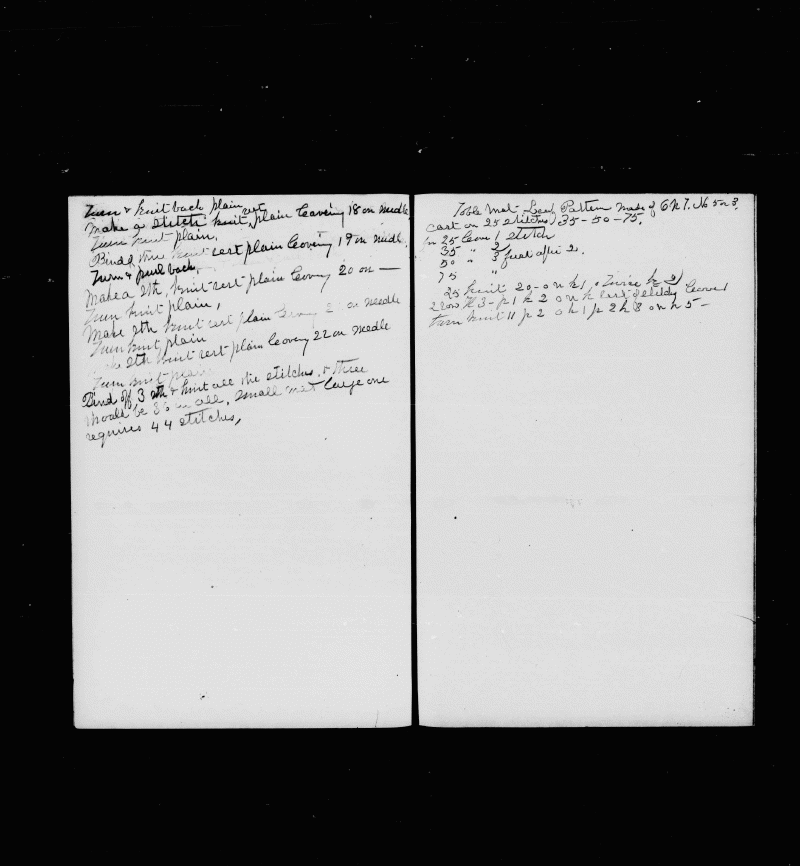 Turn & knit back plain
Make a stitch knit rest plain leaving 18 on needle
Turn knit plain,
Bind 2, then knit rest plain leaving 19 on needle.
Turn & purl back,
Make a sth, knit rest plain leaving 20 on —
Turn knit plain,
Make sth knit rest plain leaving 2 on needle
Turn knit plain
sth knit rest plain leaving 22 on needle
Turn knit plain
Bind off 3 sth & knit all the stitches, & there
should be 36 in all, small mat large one
requires 44 stitches,
Table Mat - Leaf Pattern made of No 5 or 3,
cast on 25 stitches, 35 - 50 - 75,
in 25 leave 1 stitch
35 " 2
50 " 3 after 2.
75 "
25 knit 20 - o n k 1, o twice k 2
2 row k 3 - p 1 k 2 o n k leaves
turn knit 11 p 2 o k 1 p 2 k 8 o n k 5 —